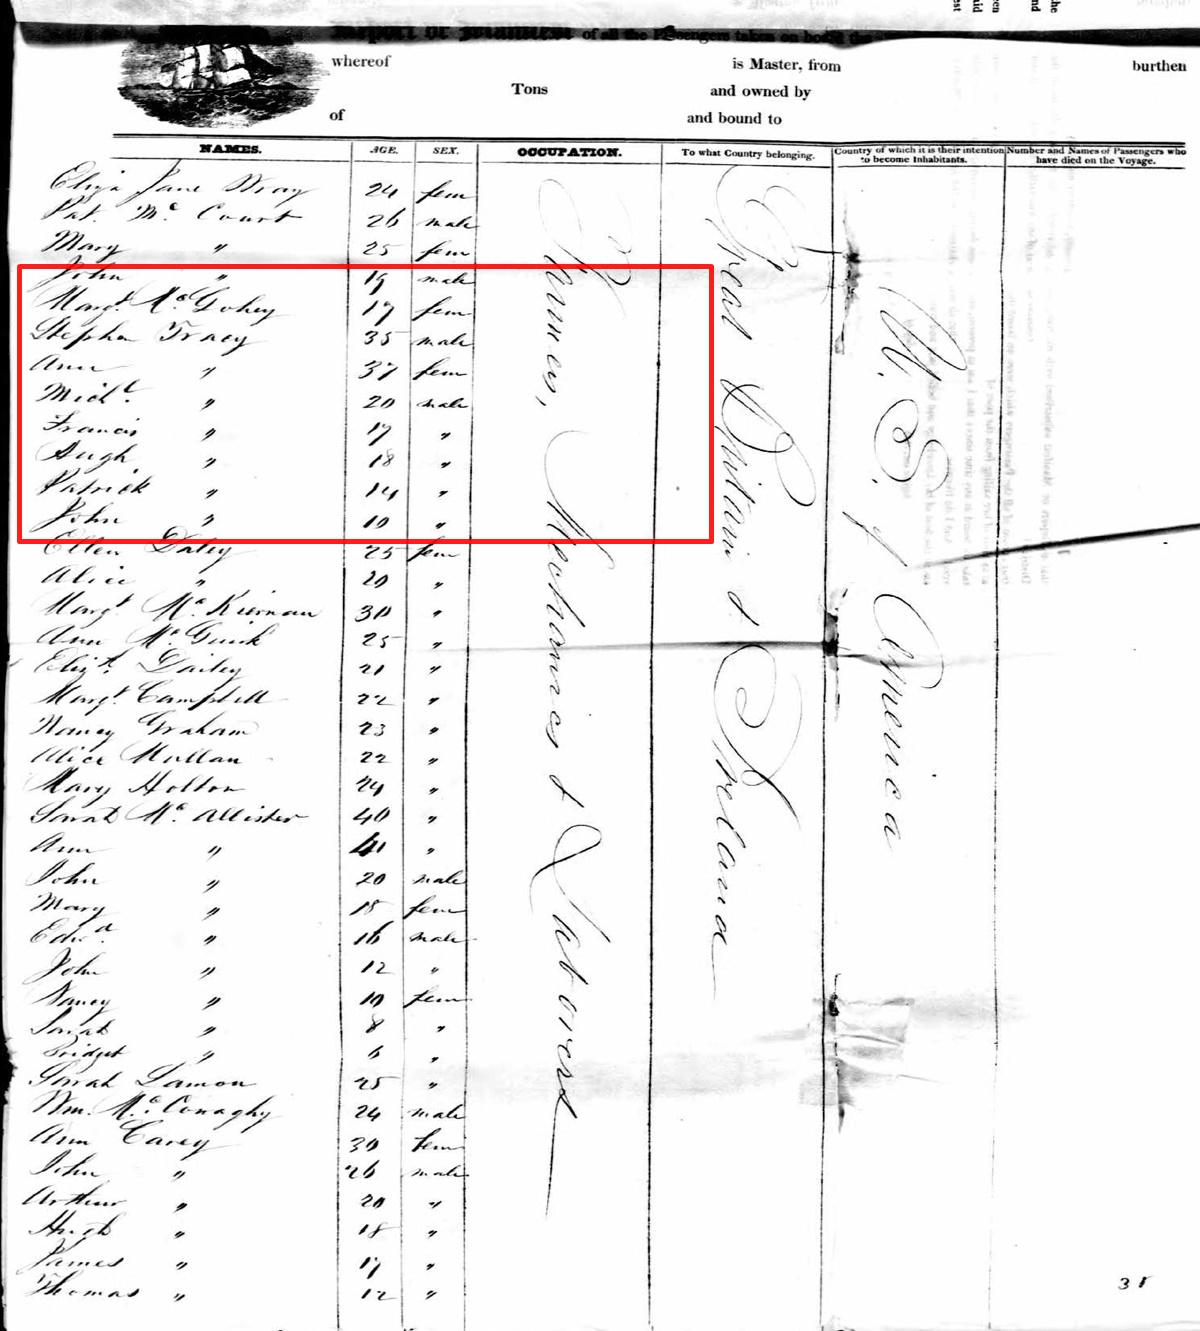 Report or Manifest of all the Passengers taken on board the
whereof is Master, from burthen
Tons and owned by
of and bound to
NAMES. AGE. SEX. OCCUPATION. To what Country belonging. Country of which it is their intention to become Inhabitants. Number and Names of Passengers who have died on the Voyage.
Eliza Jane Wray 24 fem
Pat. Mc Court 26 male
Mary " 25 fem
John " 19 male
Margt. McGohey 17 fem
Stephen Tracy 35 male
Ann " 37 fem
Michl. " 20 male
Francis " 17 "
Hugh " 18 "
Patrick " 14 "
John " 10 "
Ellen Daley 25 fem
Alice " 20 "
Margt. McKiernan 30 "
Ann McGurk 25 "
Elizh. Dailey 21 "
Margt Campbell 22 "
Nancy Graham 23 "
Alice Mullan 22 "
Mary Holton 24 "
Sarah Mc Allister 40 "
Ann " 41 "
John " 20 male
Mary " 18 fem
Edwd. " 16 male
John " 12 "
Nancy " 10 fem
Sarah " 8 "
Bridget " 6 "
Sarah Lamon 25 "
Wm. McConaghy 24 male
Ann Carey 30 fem
John " 26 male
Arthur " 20 "
Hugh " 18 "
James " 17 "
Thomas " 12 "
Farmers, Mechanics & Laborers
Great Britain & Ireland
U. S. of America